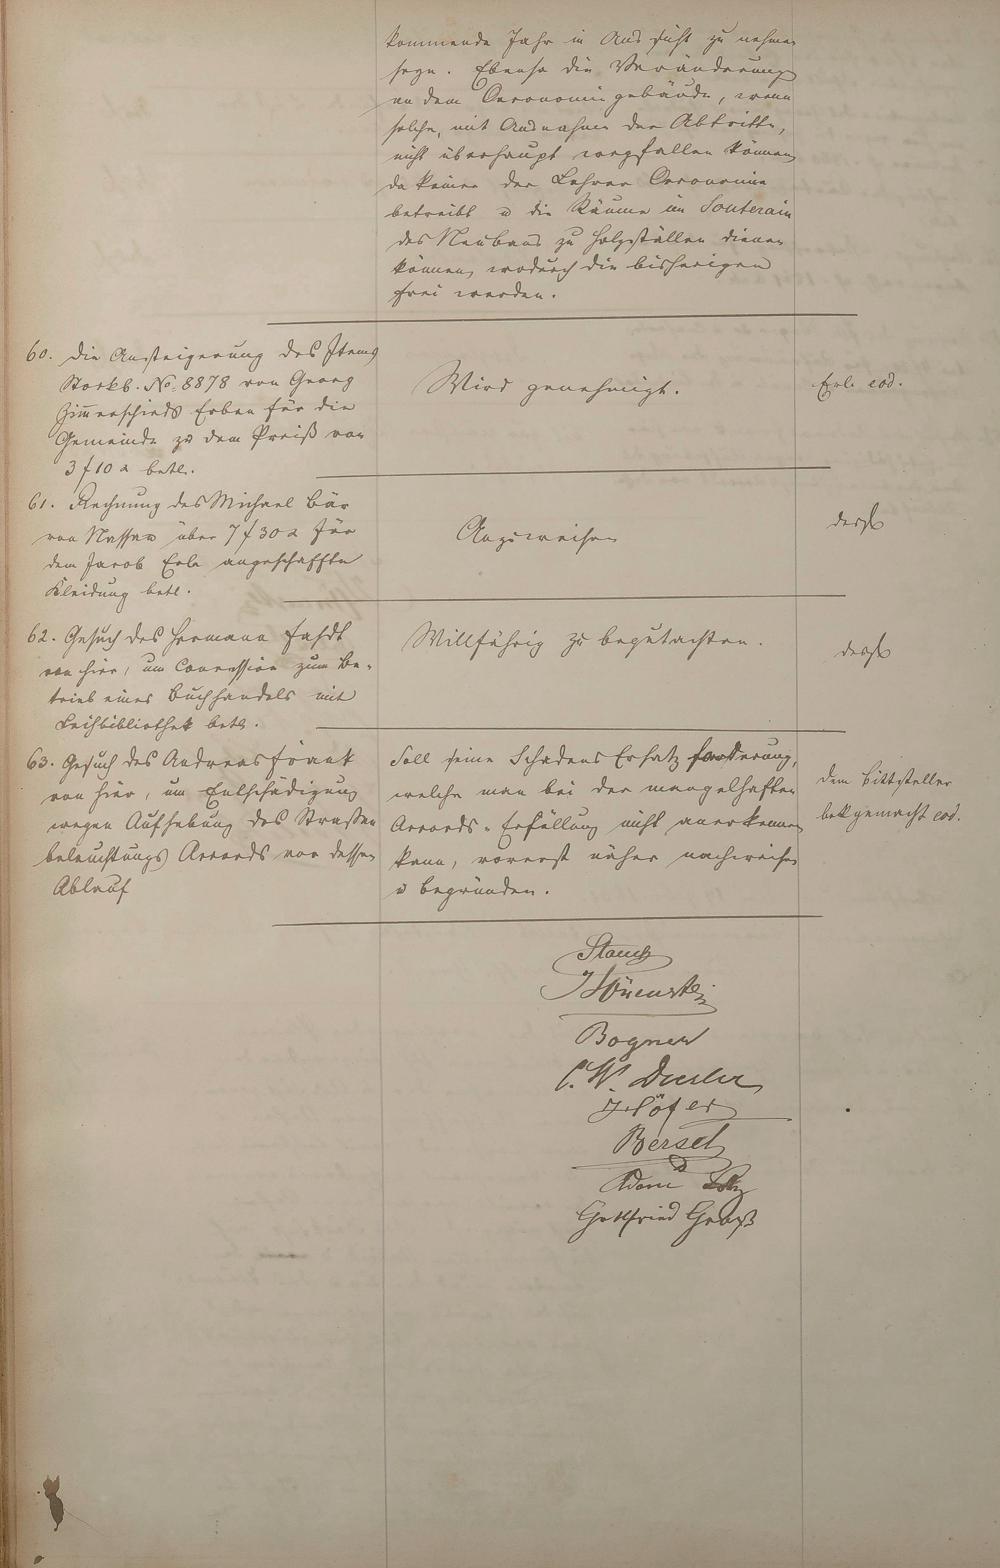 kommende Jahr in Aussicht zu nehmen
seyn. Ebenso die Veränderung
an dem Oeconomiegebäude, wenn
solche, mit Ausnahme der Abtritte,
nicht überhaupt wegfallen können,
da keiner der Lehrer Oeconomie
betreibt u die Räume im Souterain
des Neubaus zu Holzställen dienen
können, wodurch die bisherigen
frei werden.
60. Die Ansteigerung des Items
Stockb. No. 8878 von Georg
Zimmerschieds Erben für die
Gemeinde zu dem Preiß von
3 f 10 x betr.
Wird genehmigt.
Erl. eod.
61. Rechnung des Michael Bär
von Nassau über 7 f 30 x für
dem Jacob Erle angeschaffte
Kleidung betr.
Anzuweisen
desgl
62. Gesuch des Hermann
von hier, um Concession zum Be-
trieb eines Buchhandels mit
Leihbibliothek betr.
Willfährig zu begutachten.
desgl
63. Gesuch des Andreas Frank
von hier, um Entschädigung
wegen Aufhebung des Straßen
beleuchtungs Accords vor dessen
Ablauf
Soll seine Schadens Ersatz forderung,
welche man bei der mangelhaften
Accords-Erfüllung nicht anerkennen
kann, vorerst näher nachweisen
u begründen.
dem Bittsteller
bekgemacht eod.
Bogner
C. W.
Höfer
Adam
Gottfried